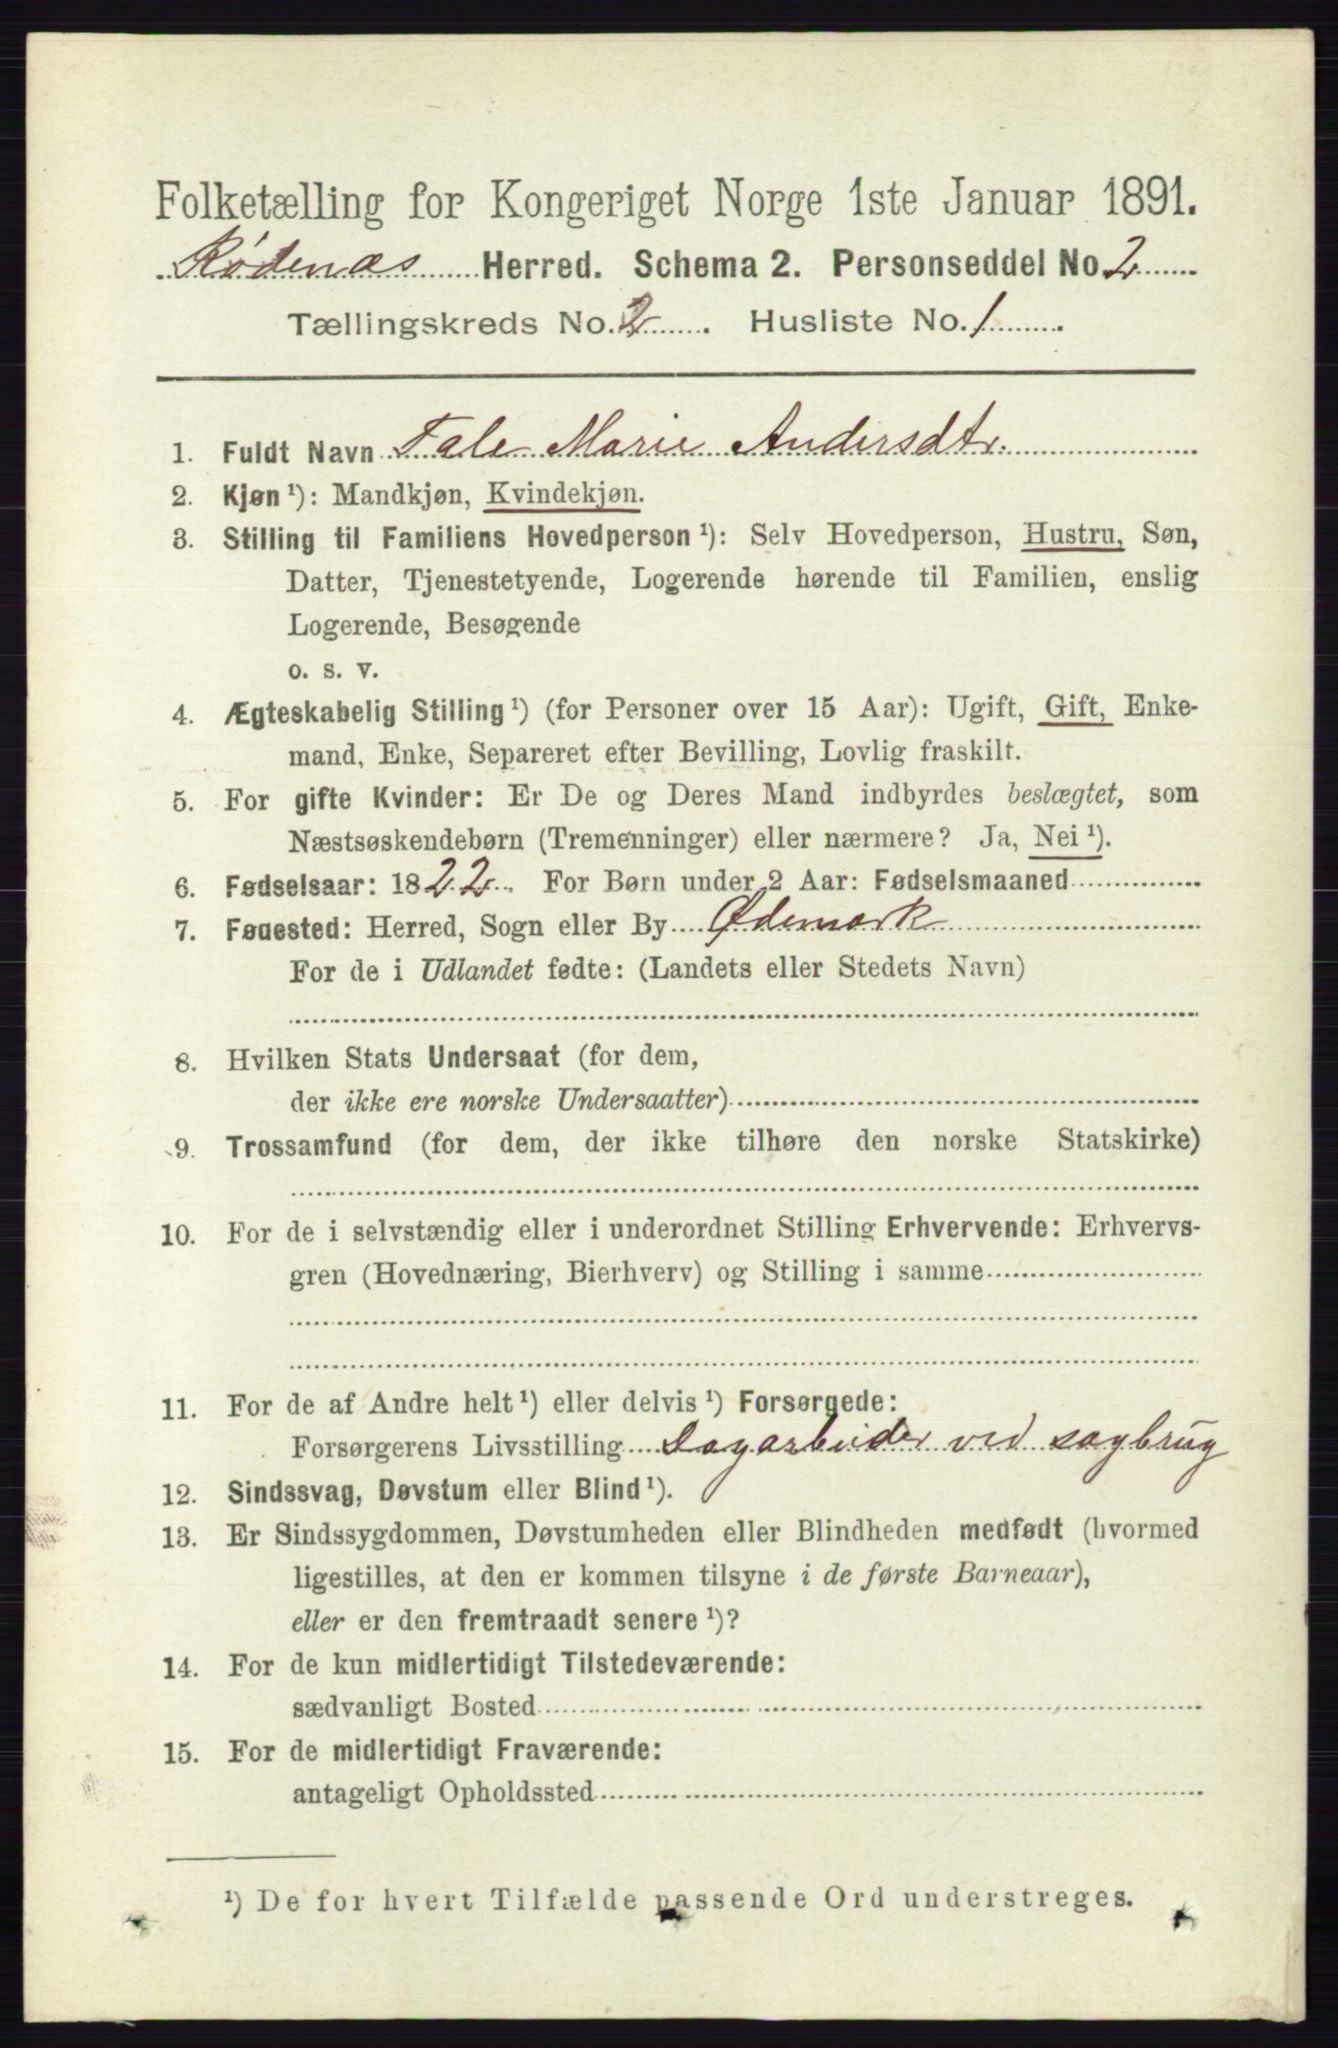 Folketælling for Kongeriget Norge 1ste Januar 1891.
Rødenæs Herred. Schema 2. Personseddel No. 2
Tællingskreds No. 2. Husliste No. 1.
1. Fuldt Navn Tale Marie Andersdtr.
2. Kjøn ¹): Mandkjøn, Kvindekjøn.
3. Stilling til Familiens Hovedperson ¹): Selv Hovedperson, Hustru, Søn,
Datter, Tjenestetyende, Logerende hørende til Familien, enslig
Logerende, Besøgende
o. s. v.
4. Ægteskabelig Stilling ¹) (for Personer over 15 Aar): Ugift, Gift, Enke-
mand, Enke, Separeret efter Bevilling, Lovlig fraskilt.
5. For gifte Kvinder: Er De og Deres Mand indbyrdes beslægtet, som
Næstsøskendebørn (Tremenninger) eller nærmere? Ja, Nei ¹).
6. Fødselsaar: 1822. For Børn under 2 Aar: Fødselsmaaned
7. Fødested: Herred, Sogn eller By Ødemark
For de i Udlandet fødte: (Landets eller Stedets Navn)
8. Hvilken Stats Undersaat (for dem,
der ikke ere norske Undersaatter)
9. Trossamfund (for dem, der ikke tilhøre den norske Statskirke)
10. For de i selvstændig eller i underordnet Stilling Erhvervende: Erhvervs-
gren (Hovednæring, Bierhverv) og Stilling i samme
11. For de af Andre helt ¹) eller delvis ¹) Forsørgede:
Forsørgerens Livsstilling Dagarbeider ved sagbrug
12. Sindssvag, Døvstum eller Blind ¹).
13. Er Sindssygdommen, Døvstumheden eller Blindheden medfødt (hvormed
ligestilles, at den er kommen tilsyne i de første Barneaar),
eller er den fremtraadt senere ¹)?
14. For de kun midlertidigt Tilstedeværende:
sædvanligt Bosted
15. For de midlertidigt Fraværende:
antageligt Opholdssted
¹) De for hvert Tilfælde passende Ord understreges.